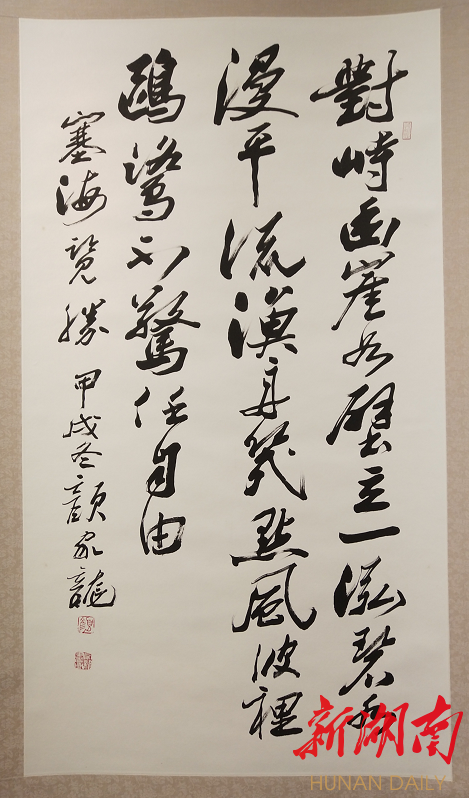 對峙幽崖如壁立一泓碧水
漫平流漁舟幾點風波裡
鷗鷺不驚任自由
塞海覽勝 甲戌冬顏家龍
新湖南
HUNAN DAILY